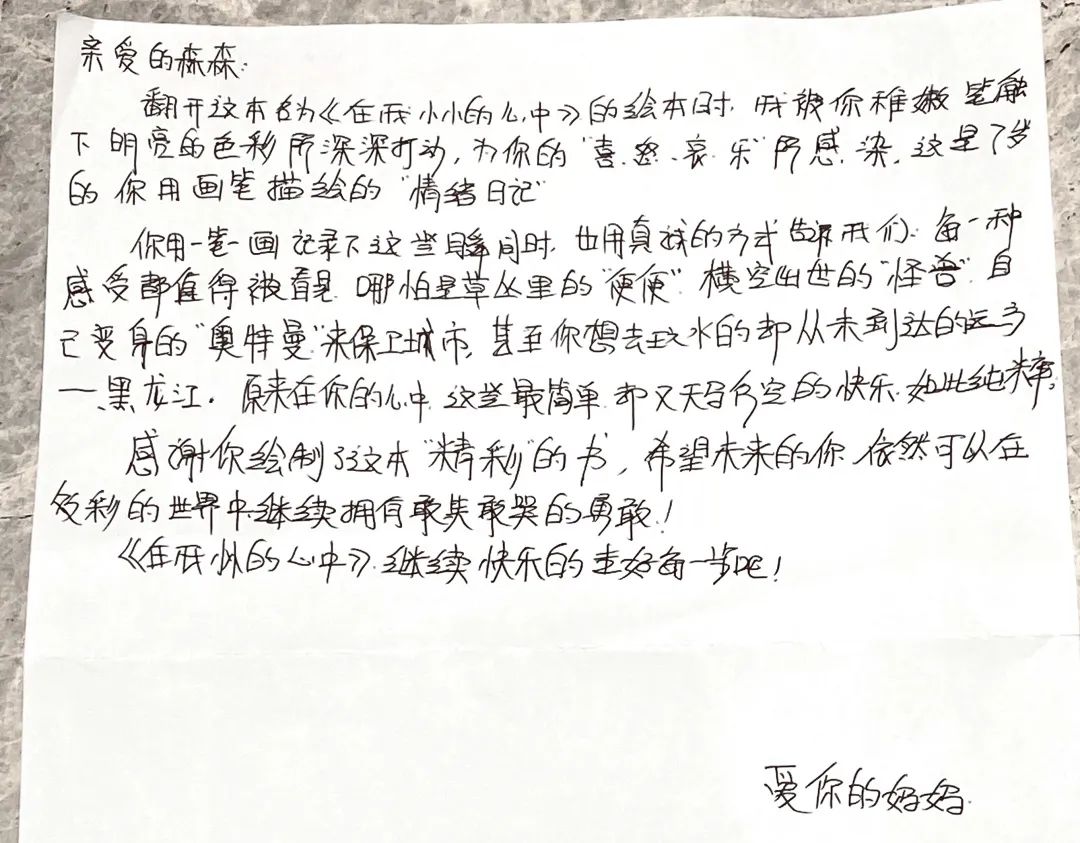 亲爱的森森:
翻开这本名为《在我小小的心中》的绘本时,我被你稚嫩笔触
下明亮的色彩所深深打动,为你的“喜.怒.哀.乐”所感.染.这是7岁
的你用画笔描绘的“情绪日记”
你用一笔一画记录下这些瞬间时.也用真诚的方式告诉我们:每一种
感受都值得被看见.哪怕是草丛里的“便便”.横空出世的“怪兽”.自
己变身的“奥特曼”来保卫城市,甚至你想去玩水的却从未到达的远方
——黑龙江.原来在你的心中.这些最简单.却又天马行空的快乐.如此纯粹。
感谢你绘制了这本“精彩”的书,希望未来的你.依然可以在
多彩的世界中继续拥有敢笑敢哭的勇敢!
《在我小小的心中》.继续快乐的走好每一步吧!
爱你的妈妈.